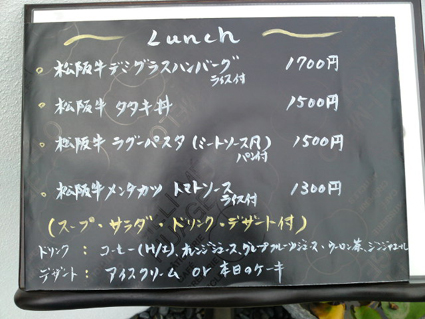 Lunch
松阪牛デミグラスハンバーグ 1700円
ライス付
松阪牛 タタキ丼 1500円
松阪牛 ラグーパスタ(ミートソース風) 1500円
パン付
松阪牛メンチカツ トマトソース 1300円
ライス付
(スープ・サラダ・ドリンク・デザート付)
ドリンク : コーヒー(H/I)、オレンジジュース、グレープフルーツジュース、ウーロン茶、ジンジャエール
デザート : アイスクリーム or 本日のケーキ